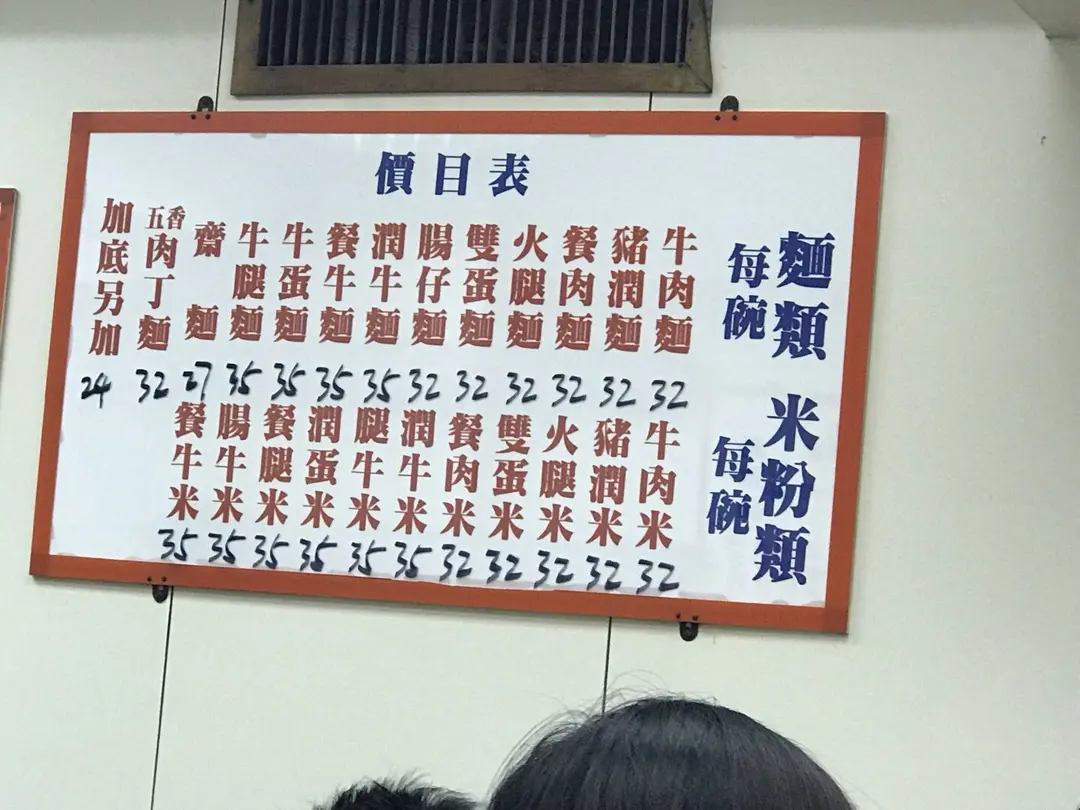 價目表
麵類 每碗
牛肉麵 32
豬潤麵 32
餐肉麵 32
火腿麵 32
雙蛋麵 32
腸仔麵 32
潤牛麵 35
餐牛麵 35
牛蛋麵 35
牛腿麵 35
齋麵 27
五香肉丁麵 32
加底另加 24
米粉類 每碗
牛肉米 32
豬潤米 32
火腿米 32
雙蛋米 32
餐肉米 32
潤牛米 35
腿牛米 35
潤蛋米 35
餐腿米 35
腸牛米 35
餐牛米 35